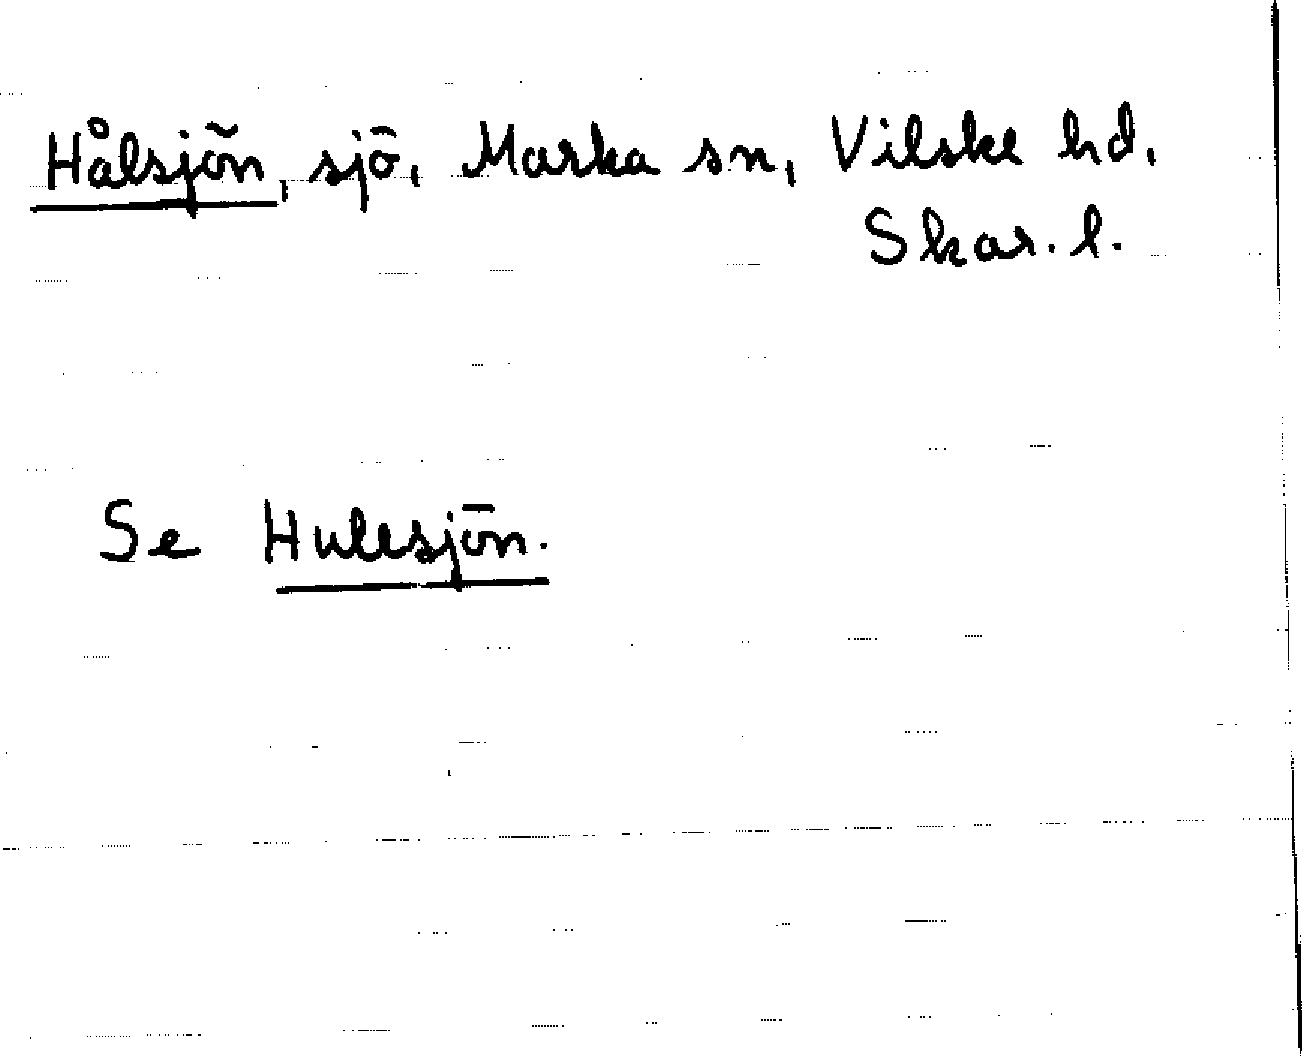 Hålsjön, sjö, Marka sn, Vilske hd,
Skar. l.
Se Hullsjön.